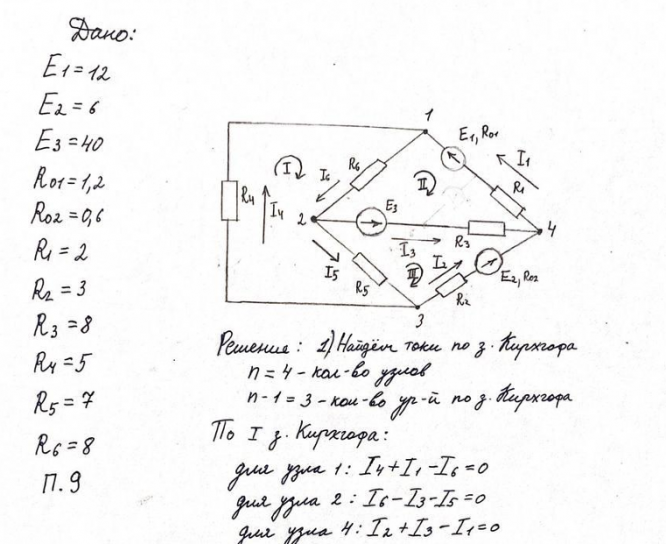 Дано:
E1=12
E2=6
E3=40
R01=1,2
R02=0,6
R1=2
R2=3
R3=8
R4=5
R5=7
R6=8
П.9
1
E1, R01
I1
R1
R6
I6
I
II
R4
I4
2
E3
4
I3
R3
I5
R5
III
I2
R2
E2, R02
3
Решение: 1) Найдём токи по з. Кирхгофа
n=4 - кол-во узлов
n-1=3 - кол-во ур-й по з. Кирхгофа
По I з. Кирхгофа:
для узла 1: I4+I1-I6=0
для узла 2: I6-I3-I5=0
для узла 4: I2+I3-I1=0